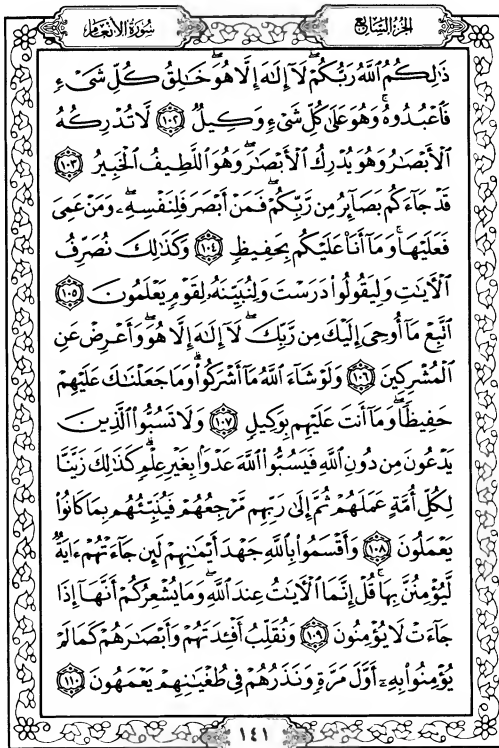 سُورَةُ الأَنعَام
الجُزءُ السَّابِع
ذَٰلِكُمُ ٱللَّهُ رَبُّكُمۡۖ لَآ إِلَٰهَ إِلَّا هُوَۖ خَٰلِقُ كُلِّ شَيۡءٖ
فَٱعۡبُدُوهُۚ وَهُوَ عَلَىٰ كُلِّ شَيۡءٖ وَكِيلٞ ١٠٢ لَّا تُدۡرِكُهُ
ٱلۡأَبۡصَٰرُ وَهُوَ يُدۡرِكُ ٱلۡأَبۡصَٰرَۖ وَهُوَ ٱللَّطِيفُ ٱلۡخَبِيرُ ١٠٣
قَدۡ جَآءَكُم بَصَآئِرُ مِن رَّبِّكُمۡۖ فَمَنۡ أَبۡصَرَ فَلِنَفۡسِهِۦۖ وَمَنۡ عَمِيَ
فَعَلَيۡهَاۚ وَمَآ أَنَا۠ عَلَيۡكُم بِحَفِيظٖ ١٠٤ وَكَذَٰلِكَ نُصَرِّفُ
ٱلۡأٓيَٰتِ وَلِيَقُولُواْ دَرَسۡتَ وَلِنُبَيِّنَهُۥ لِقَوۡمٖ يَعۡلَمُونَ ١٠٥
ٱتَّبِعۡ مَآ أُوحِيَ إِلَيۡكَ مِن رَّبِّكَۖ لَآ إِلَٰهَ إِلَّا هُوَۖ وَأَعۡرِضۡ عَنِ
ٱلۡمُشۡرِكِينَ ١٠٦ وَلَوۡ شَآءَ ٱللَّهُ مَآ أَشۡرَكُواْۗ وَمَا جَعَلۡنَٰكَ عَلَيۡهِمۡ
حَفِيظٗاۖ وَمَآ أَنتَ عَلَيۡهِم بِوَكِيلٖ ١٠٧ وَلَا تَسُبُّواْ ٱلَّذِينَ
يَدۡعُونَ مِن دُونِ ٱللَّهِ فَيَسُبُّواْ ٱللَّهَ عَدۡوَۢا بِغَيۡرِ عِلۡمٖۗ كَذَٰلِكَ زَيَّنَّا
لِكُلِّ أُمَّةٍ عَمَلَهُمۡ ثُمَّ إِلَىٰ رَبِّهِم مَّرۡجِعُهُمۡ فَيُنَبِّئُهُم بِمَا كَانُواْ
يَعۡمَلُونَ ١٠٨ وَأَقۡسَمُواْ بِٱللَّهِ جَهۡدَ أَيۡمَٰنِهِمۡ لَئِن جَآءَتۡهُمۡ ءَايَةٞ
لَّيُؤۡمِنُنَّ بِهَاۚ قُلۡ إِنَّمَا ٱلۡأٓيَٰتُ عِندَ ٱللَّهِۖ وَمَا يُشۡعِرُكُمۡ أَنَّهَآ إِذَا
جَآءَتۡ لَا يُؤۡمِنُونَ ١٠٩ وَنُقَلِّبُ أَفۡـِٔدَتَهُمۡ وَأَبۡصَٰرَهُمۡ كَمَا لَمۡ
يُؤۡمِنُواْ بِهِۦٓ أَوَّلَ مَرَّةٖ وَنَذَرُهُمۡ فِي طُغۡيَٰنِهِمۡ يَعۡمَهُونَ ١١٠
١٤١